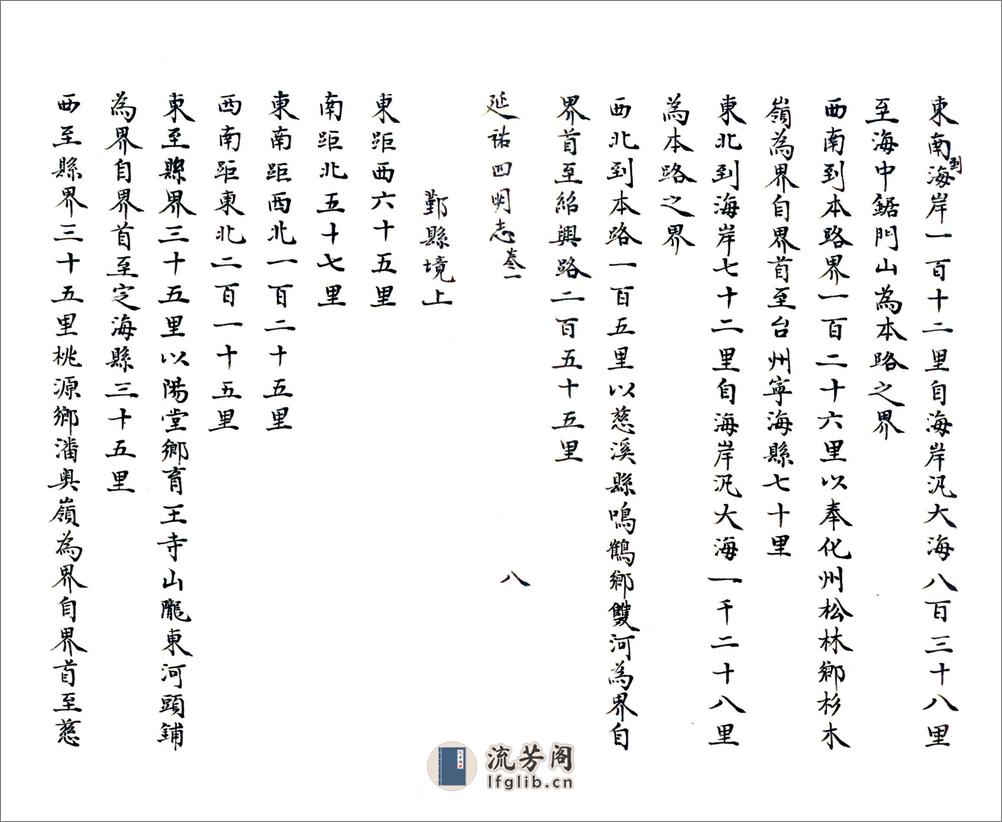 東南到海岸一百十二里自海岸汎大海八百三十八里
至海中鋸門山為本路之界
西南到本路界一百二十六里以奉化州松林鄉杉木
嶺為界自界首至台州寧海縣七十里
東北到海岸七十二里自海岸汎大海一千二十八里
為本路之界
西北到本路一百五里以慈溪縣鳴鶴鄉雙河為界自
界首至紹興路二百五十五里
延祐四明志 卷一 八
鄞縣境上
東距西六十五里
南距北五十七里
東南距西北一百二十五里
西南距東北二百一十五里
東至縣界三十五里以陽堂鄉育王寺山隴東河頭鋪
為界自界首至定海縣三十五里
西至縣界三十五里桃源鄉潘奧嶺為界自界首至慈
流芳阁
lfglib.cn